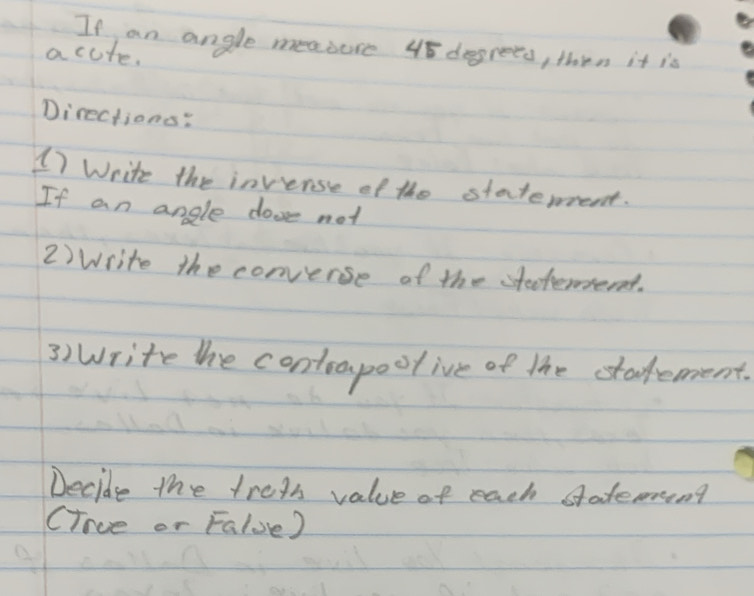 If an angle measure 45 degrees, then it is
acute.
Directions:
1) Write the inverse of the statement.
If an angle does not
2) Write the converse of the statement.
3) Write the contrapostive of the statement.
Decide the truth value of each statement
(True or False)